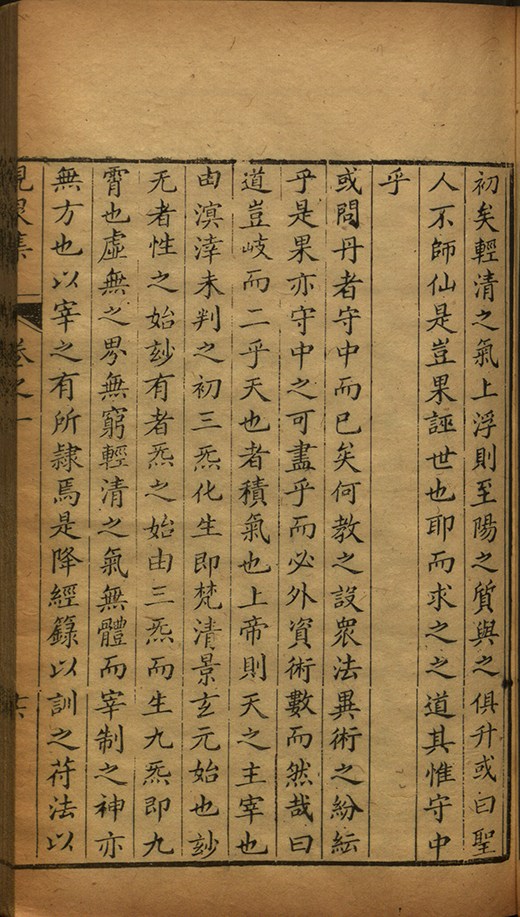 初矣輕清之氣上浮則至陽之質與之俱升或曰聖
人不師仙是豈果誣世也耶而求之之道其惟守中
乎
或問丹者守中而已矣何教之設衆法異術之紛紜
乎是果亦守中之可盡乎而必外資術數而然哉曰
道豈岐而二乎天也者積氣也上帝則天之主宰也
由溟涬未判之初三炁化生即梵清景玄元始也玅
无者性之始玅有者炁之始由三炁而生九炁即九
霄也虛無之界無窮輕清之氣無體而宰制之神亦
無方也以宰之有所隷焉是降經籙以訓之符法以
峴泉集 卷之一 十六